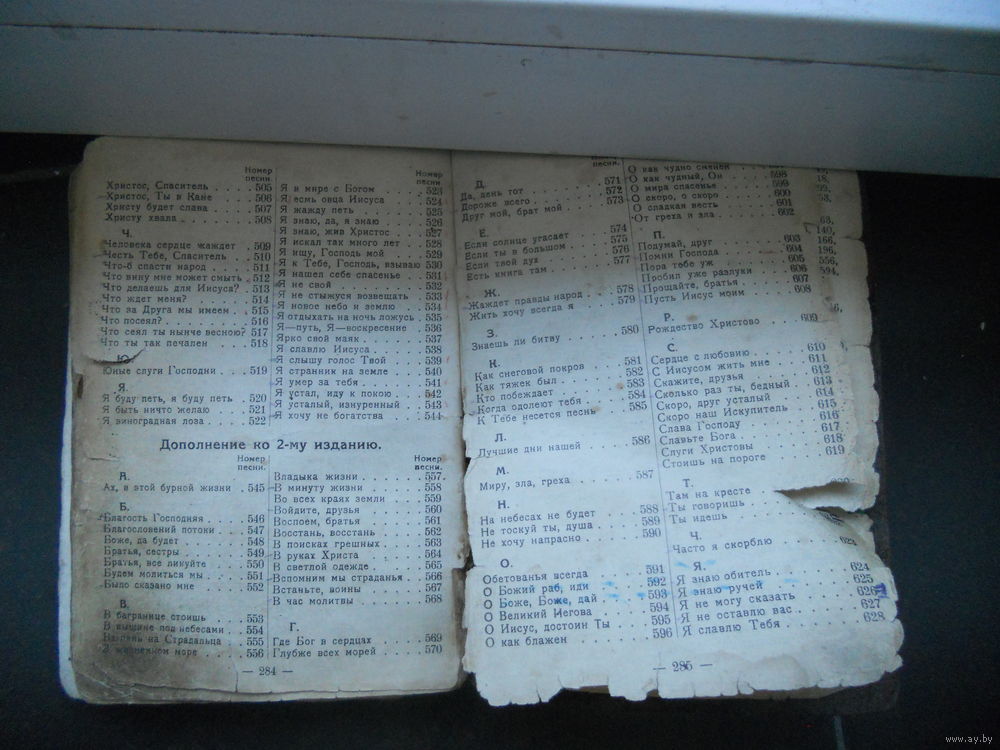 Номер
песни.
Христос, Спаситель . . . . 505
Христос, Ты в Кане . . . . 506
Христу будет слава . . . . 507
Христу хвала . . . . . . . 508
Ч.
Человека сердце жаждет . 509
Честь Тебе, Спаситель . . 510
Что-б спасти народ . . . . 511
Что вину мне может смыть . 512
Что делаешь для Иисуса? . 513
Что ждет меня? . . . . . 514
Что за Друга мы имеем . . 515
Что посеял? . . . . . . . 516
Что сеял ты нынче весною? 517
Что ты так печален . . . . 518
Ю.
Юные слуги Господни . . . 519
Я.
Я буду петь, я буду петь . 520
Я быть ничто желаю . . . 521
Я виноградная лоза . . . . 522
Номер
песни.
Я в мире с Богом . . . . 523
Я есмь овца Иисуса . . . 524
Я жажду петь . . . . . . 525
Я знаю, да, я знаю . . . . 526
Я знаю, жив Христос . . . 527
Я искал так много лет . . 528
Я ищу, Господь мой . . . 529
Я к Тебе, Господь, взываю 530
Я нашел себе спасенье . . 531
Я не свой . . . . . . . . 532
Я не стыжуся возвещать . 533
Я новое небо и землю . . 534
Я отдыхать на ночь ложусь . 535
Я—путь, Я—воскресение . 536
Ярко свой маяк . . . . . 537
Я славлю Иисуса . . . . . 538
Я слышу голос Твой . . . 539
Я странник на земле . . . 540
Я умер за тебя . . . . . 541
Я устал, иду к покою . . . 542
Я усталый, изнуренный . . 543
Я хочу не богатства . . . 544
Дополнение ко 2-му изданию.
Номер
песни.
А.
Ах, в этой бурной жизни . 545
Б.
Благость Господняя . . . . 546
Благословений потоки . . . 547
Боже, да будет . . . . . 548
Братья, сестры . . . . . . 549
Братья, все ликуйте . . . 550
Будем молиться мы . . . . 551
Было сказано мне . . . . 552
В.
В багранице стоишь . . . 553
В вышине под небесами . . 554
Взгляни на Страдальца . . 555
В жизненном море . . . . 556
Номер
песни.
Владыка жизни . . . . . . 557
В минуту жизни . . . . . 558
Во всех краях земли . . . 559
Войдите, друзья . . . . . 560
Воспоем, братья . . . . . 561
Восстань, восстань . . . . 562
В поисках грешных . . . . 563
В руках Христа . . . . . 564
В светлой одежде . . . . 565
Вспомним мы страданья . . 566
Встаньте, воины . . . . . 567
В час молитвы . . . . . . 568
Г.
Где Бог в сердцах . . . . 569
Глубже всех морей . . . . 570
— 284 —
песни.
Д.
Да, день тот . . . . . . 571
Дороже всего . . . . . . 572
Друг мой, брат мой . . . 573
Е.
Если солнце угасает . . . 574
Если ты в большом . . . . 575
Если твой дух . . . . . . 576
Есть книга там . . . . . . 577
Ж.
Жаждет правды народ . . . 578
Жить хочу всегда я . . . . 579
З.
Знаешь ли битву . . . . . 580
К.
Как снеговой покров . . . 581
Как тяжек был . . . . . . 582
Кто побеждает . . . . . . 583
Когда одолеют тебя . . . . 584
К Тебе несется песнь . . . 585
Л.
Лучшие дни нашей . . . . 586
М.
Миру, зла, греха . . . . . 587
Н.
На небесах не будет . . . 588
Не тоскуй ты, душа . . . . 589
Не хочу напрасно . . . . . 590
О.
Обетованья всегда . . . . 591
О Божий раб, иди . . . . 592
О Боже, Боже, дай . . . . 593
О Великий Иегова . . . . 594
О Иисус, достоин Ты . . . 595
О как блажен . . . . . . 596
О как чудно сменен
О как чудный, Он . . . . 598
О мира спасенье . . . . . 599
О скоро, о скоро . . . . . 600
О сладкая весть . . . . . 601
От греха и зла . . . . . . 602
П.
Подумай, друг . . . . . . 603
Помни Господа . . . . . . 604
Пора тебе уж . . . . . . 605
Пробил уже разлуки . . . 606
Прощайте, братья . . . . . 607
Пусть Иисус моим . . . . 608
Р.
Рождество Христово . . . 609
С.
Сердце с любовию . . . . 610
С Иисусом жить мне . . . 611
Скажите, друзья . . . . . 612
Сколько раз ты, бедный . . 613
Скоро, друг усталый . . . 614
Скоро наш Искупитель . . 615
Слава Господу . . . . . . 616
Славьте Бога . . . . . . . 617
Слуги Христовы . . . . . 618
Стоишь на пороге . . . . 619
Т.
Там на кресте
Ты говоришь
Ты идешь
Ч.
Часто я скорблю . . . . . 623
Я.
Я знаю обитель . . . . . 624
Я знаю ручей . . . . . . 625
Я не могу сказать . . . . 626
Я не оставлю вас . . . . . 627
Я славлю Тебя . . . . . . 628
— 285 —
140,
166,
196,
556,
594,
www.ay.by